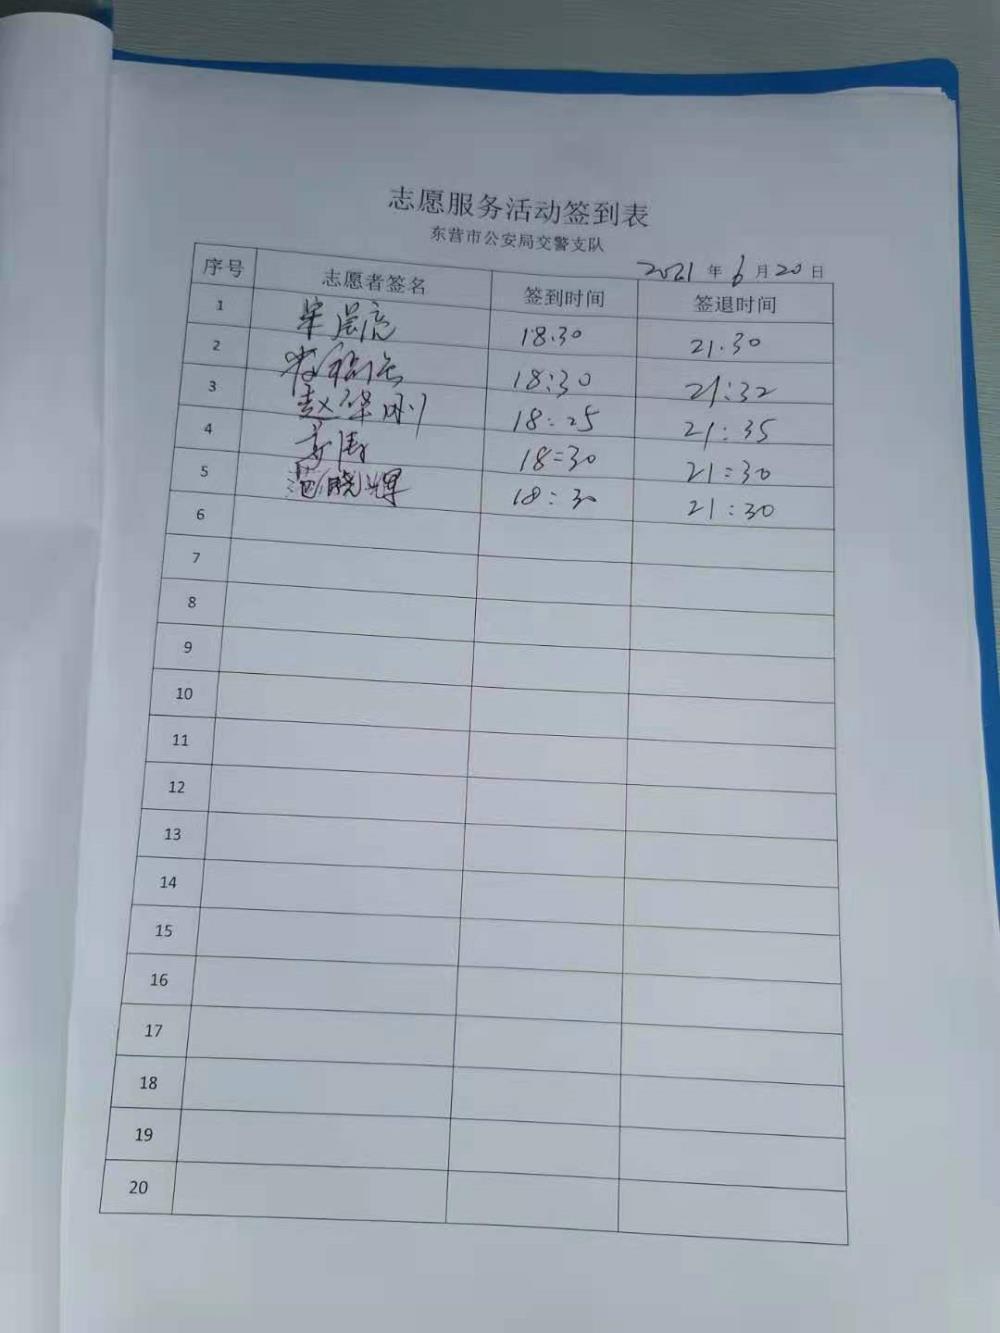 志愿服务活动签到表
东营市公安局交警支队
2021年6月20日
序号 志愿者签名 签到时间 签退时间
1 18.30 21.30
2 18:30 21:32
3 赵华刚 18:25 21:35
4 18:30 21:30
5 范晓辉 18:30 21:30
6
7
8
9
10
11
12
13
14
15
16
17
18
19
20